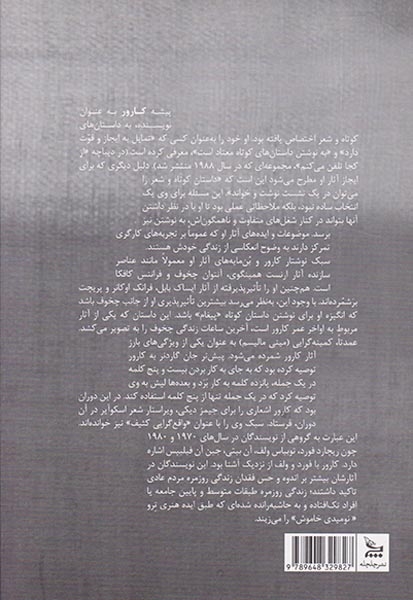 پیشه کارور به عنوان
نویسنده، به داستان‌های
کوتاه و شعر اختصاص یافته بود. او خود را به‌عنوان کسی که «تمایل به ایجاز و قوت
دارد» و «به نوشتن داستان‌های کوتاه معتاد است»، معرفی کرده است(در دیباچه «از
کجا تلفن می‌کنم»، مجموعه‌ای که در سال ۱۹۸۸ منتشر شد). دلیل دیگری که برای
ایجاز آثار او مطرح می‌شود این است که «داستان کوتاه و شعر را
می‌توان در یک نشست نوشت و خواند». این مسئله برای وی یک
انتخاب ساده نبود، بلکه ملاحظاتی عملی بود تا او با در نظر داشتن
آنها بتواند در کنار شغل‌های متفاوت و ناهمگون‌اش، به نوشتن نیز
برسد. موضوعات و ایده‌های آثار او که عموماً بر تجربه‌های کارگری
تمرکز دارند به وضوح انعکاسی از زندگی خودش هستند.
سبک نوشتار کارور و بُن‌مایه‌های آثار او معمولاً مانند عناصر
سازنده آثار ارنست همینگوی، آنتوان چخوف و فرانتس کافکا
است. هم‌چنین او را تأثیرپذیرفته از آثار ایساک بابل، فرانک اوکانر و پریچت
برشمرده‌اند. با وجود این، به‌نظر می‌رسد بیشترین تأثیرپذیری او از جانب چخوف باشد
که انگیزه او برای نوشتن داستان کوتاه «پیغام» باشد. این داستان که یکی از آثار
مربوط به اواخر عمر کارور است، آخرین ساعات زندگی چخوف را به تصویر می‌کشد.
عمدتا، کمینه‌گرایی (مینی مالیسم) به عنوان یکی از ویژگی‌های بارز
آثار کارور شمرده می‌شود. پیش‌تر جان گاردنر به کارور
توصیه کرده بود که به جای به کار بردن بیست و پنج کلمه
در یک جمله، پانزده کلمه به کار بَرَد و بعدها لیش به وی
توصیه کرد که در یک جمله تنها از پنج کلمه استفاده کند. در این دوران
بود که کارور اشعاری را برای جیمز دیکی، ویراستار شعر اسکوآیر در آن
دوران، فرستاد. سبک وی را با عنوان «واقع‌گرایی کثیف» نیز خوانده‌اند.
این عبارت به گروهی از نویسندگان در سال‌های ۱۹۷۰ و ۱۹۸۰
چون ریچارد فورد، توبیاس ولف، آن بیتی، جین آن فیلیپس اشاره
دارد. کارور با فورد و ولف از نزدیک آشنا بود. این نویسندگان در
آثارشان بیشتر بر اندوه و حس فقدان زندگی روزمره مردم عادی
تاکید داشتند؛ زندگی روزمره طبقات متوسط و پایین جامعه یا
افراد تک‌افتاده و به حاشیه‌رانده شده‌ای که طبق ایده هنری ثرو
«نومیدی خاموش» را می‌زیند.
نشر چلچله
9 789648 329827